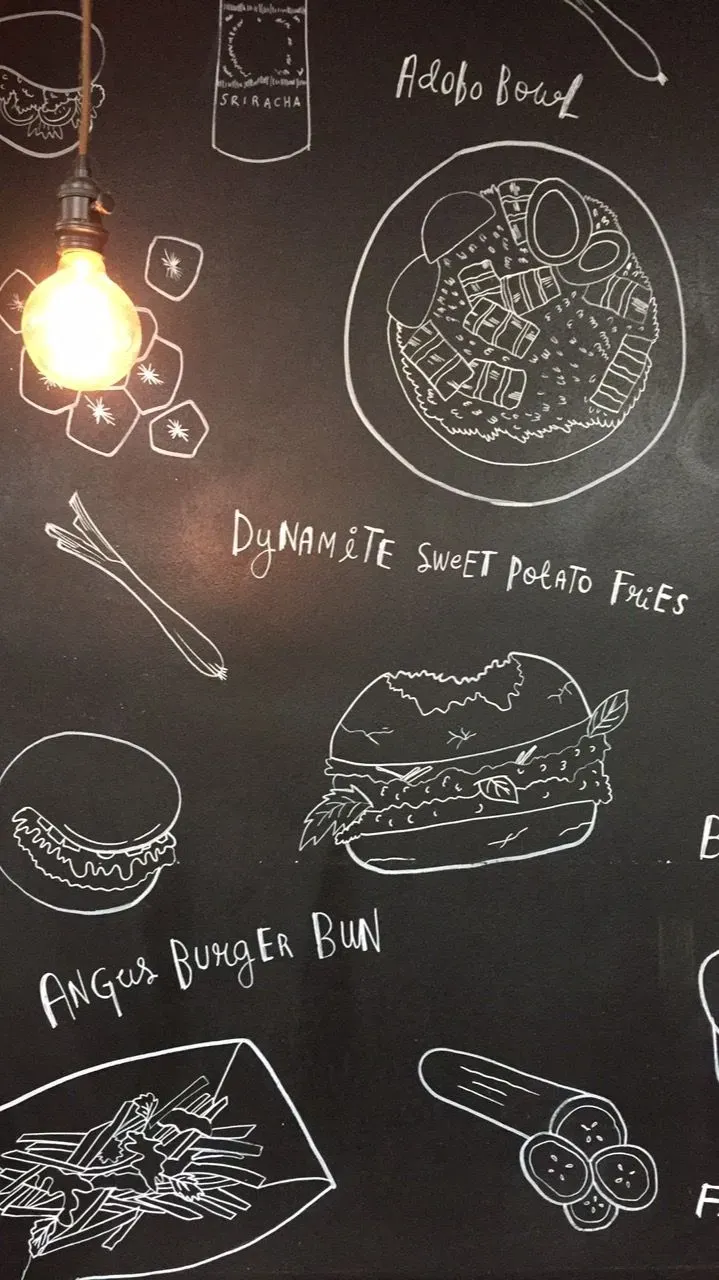 SRIRACHA
Adobo Bowl
DyNAMiTE SWeET PotATO FRiEs
ANGus BuRgER BUN
B
F